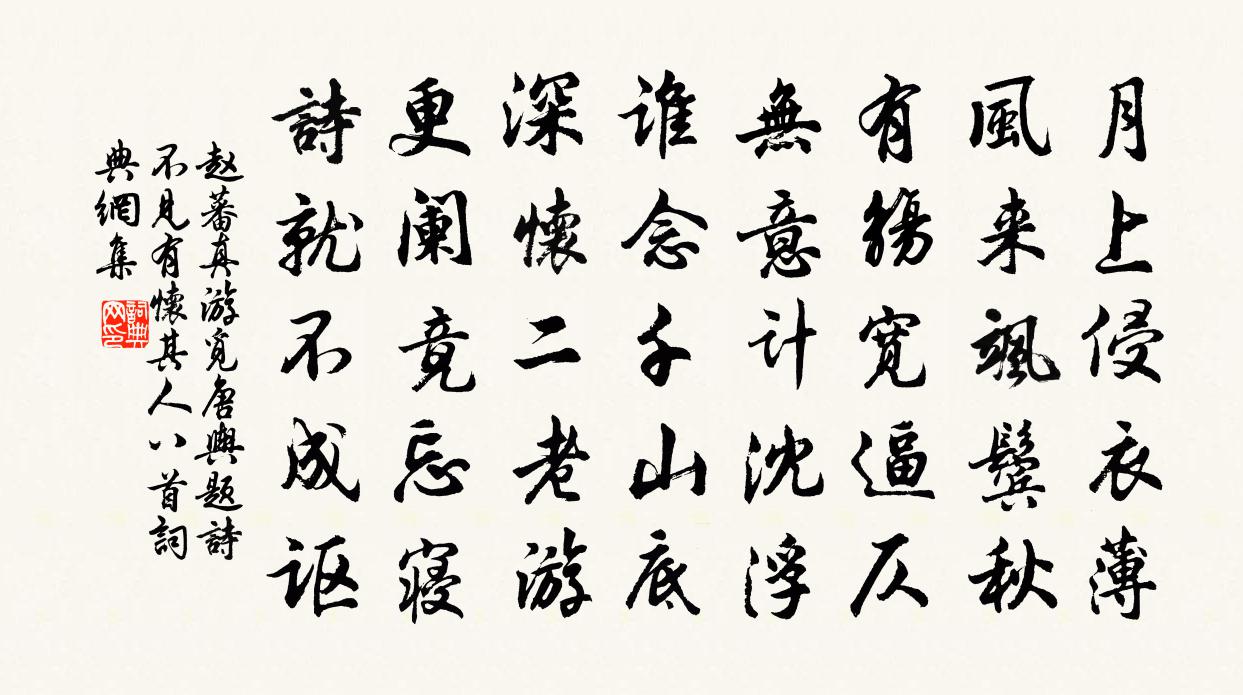 月上侵衣薄
風来颯鬓秋
有觴寛逼仄
無意计沈浮
谁念千山底
深懷二老游
更阑竟忘寝
詩就不成讴
赵蕃真游觅唐興题詩
不見有懷其人八首詞
典網集
詞典
网印